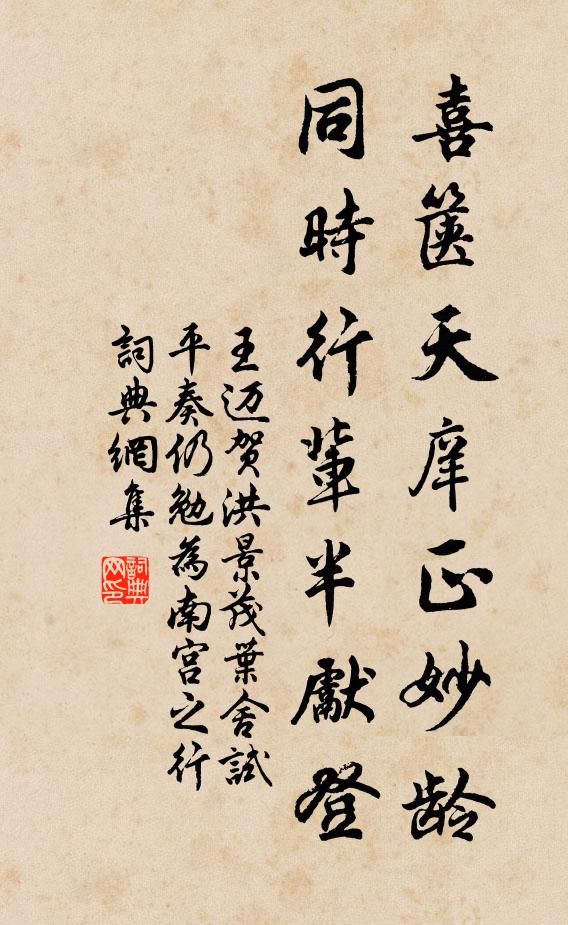 喜篋天庠正妙龄
同時行輩半獻登
王迈贺洪景茂葉舍試
平奏仍勉為南宫之行
詞典網集
詞典网印